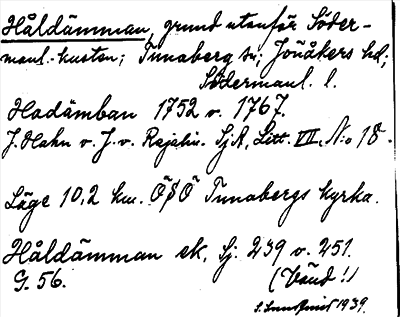 Håldämman, grund utanför Söder-
manl.-kusten; Tunaberg sn; Jönåkers hd;
Södermanl. l.
Hadämban 1752 v. 1767.
J. Hahn v. J. v. Rajalin. SjA, Litt. VII, No 18.
Läge 10,2 km. OSO Tunabergs kyrka.
Håldämman ek, Sj. 239 v. 251.
G. 56.
(Vänd!)
1939.